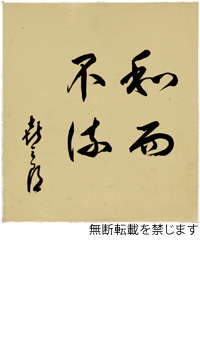 和而
不流
無断転載を禁じます